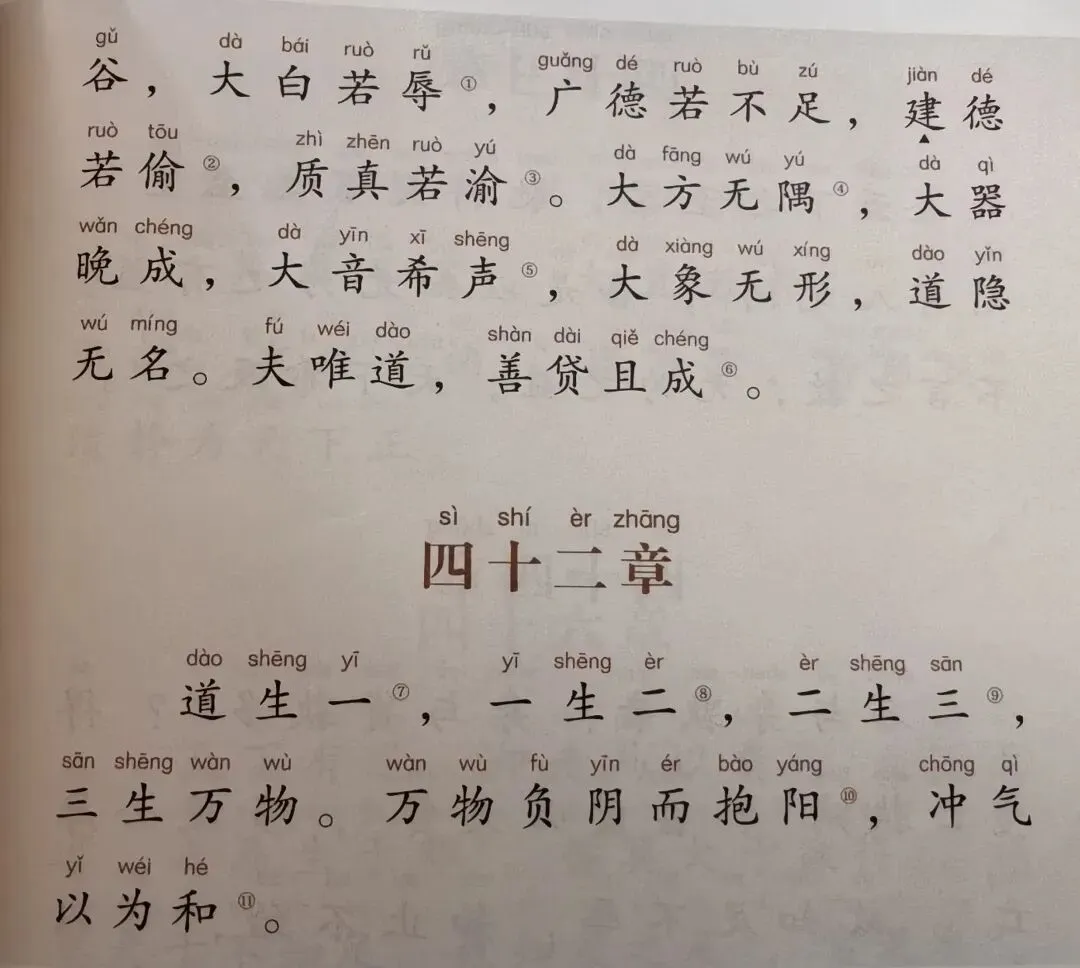 gǔ dà bái ruò rǔ guǎng dé ruò bù zú jiàn dé
谷，大白若辱①，广德若不足，建德
ruò tōu zhì zhēn ruò yú dà fāng wú yú dà qì
若偷②，质真若渝③。大方无隅④，大器
wǎn chéng dà yīn xī shēng dà xiàng wú xíng dào yǐn
晚成，大音希声⑤，大象无形，道隐
wú míng fú wéi dào shàn dài qiě chéng
无名。夫唯道，善贷且成⑥。
sì shí èr zhāng
四十二章
dào shēng yī yī shēng èr èr shēng sān
道生一⑦，一生二⑧，二生三⑨，
sān shēng wàn wù wàn wù fù yīn ér bào yáng chōng qì
三生万物。万物负阴而抱阳⑩，冲气
yǐ wéi hé
以为和⑪。